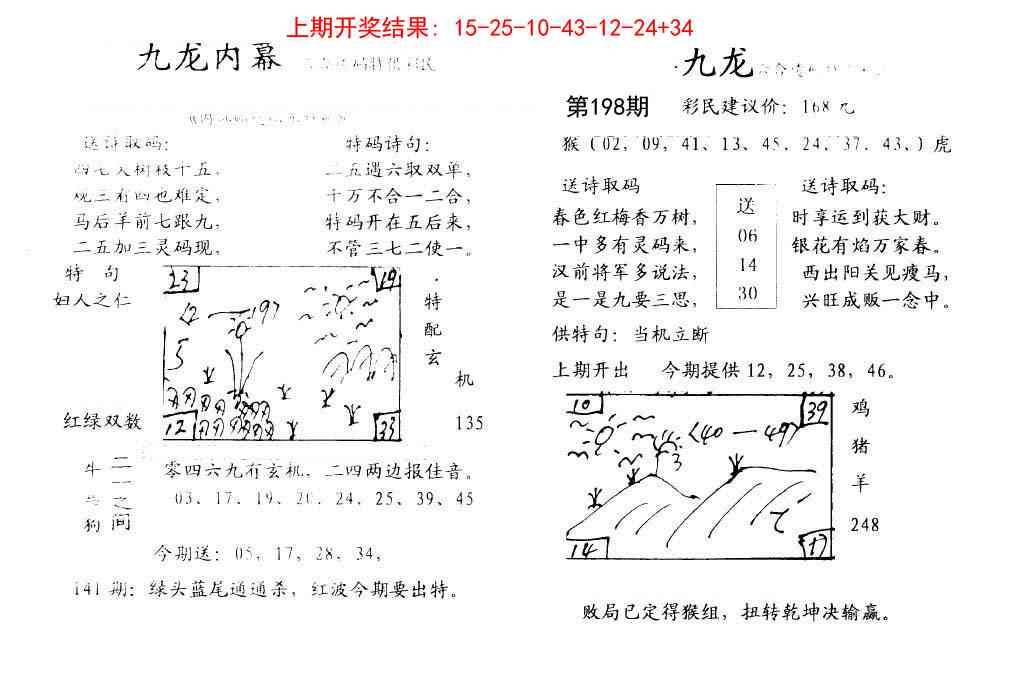 上期开奖结果：15-25-10-43-12-24+34
九龙内幕
送诗取码：
四七大树枝十五，
观三有四也难定，
马后羊前七跟九，
二五加三灵码现，
特码诗句：
二五遇六取双单，
千万不合一二合，
特码开在五后来，
不管三七二使一。
特 句
妇人之仁
红绿双数
23
19
12
33
5
特
配
玄
机
135
牛
狗
二
一
之
间
零四六九有玄机，二四两边报佳音。
03、17、19、20、24、25、39、45
今期送：05，17，28，34，
141期：绿头蓝尾通通杀，红波今期要出特。
九龙
第198期 彩民建议价：168元
猴（02，09，41、13、45，24，37，43、）虎
送诗取码
春色红梅香万树，
一中多有灵码来，
汉前将军多说法，
是一是九要三思，
送
06
14
30
送诗取码：
时享运到获大财。
银花有焰万家春。
西出阳关见瘦马，
兴旺成贩一念中。
供特句：当机立断
上期开出 今期提供12，25，38，46。
10
39
〈40—49〉
14
17
鸡
猪
羊
248
败局已定得猴组，扭转乾坤决输赢。